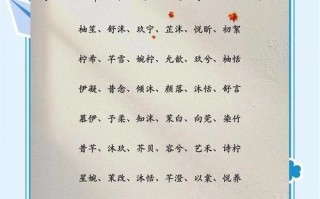 柚笙、舒沐、玖宁、芷沫、悦昕、初絮
柠希、芊雪、婉柠、允歆、玖兮、柚恬
伊凝、昔念、倾沐、颜落、沐恬、舒言
慕伊、子柔、知沐、茉白、向莞、染竹
昔芊、沐玖、芥贝、容兮、艺禾、诗柠
星婉、茉改、沐恬、芊澄、以棠、悦荞